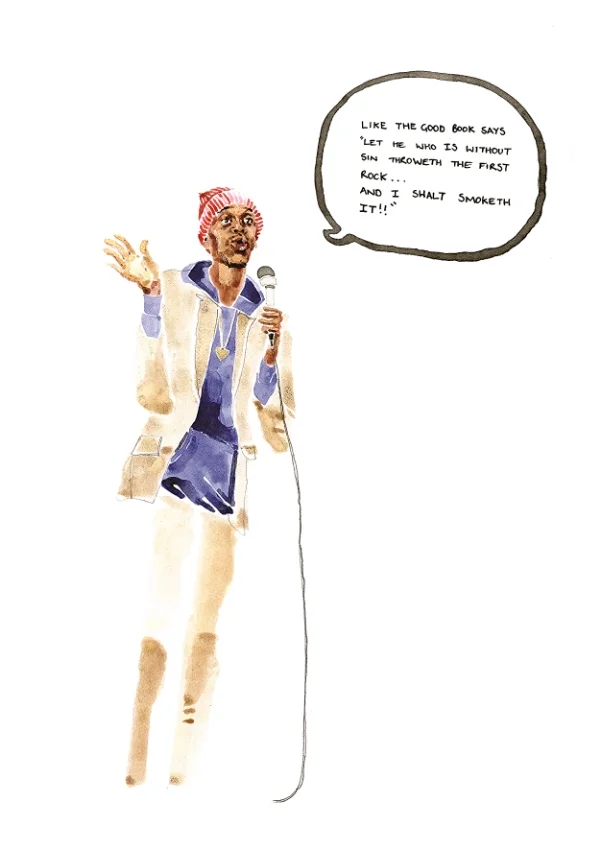 LIKE THE GOOD BOOK SAYS
"LET HE WHO IS WITHOUT
SIN THROWETH THE FIRST
ROCK...
AND I SHALT SMOKETH
IT!!"